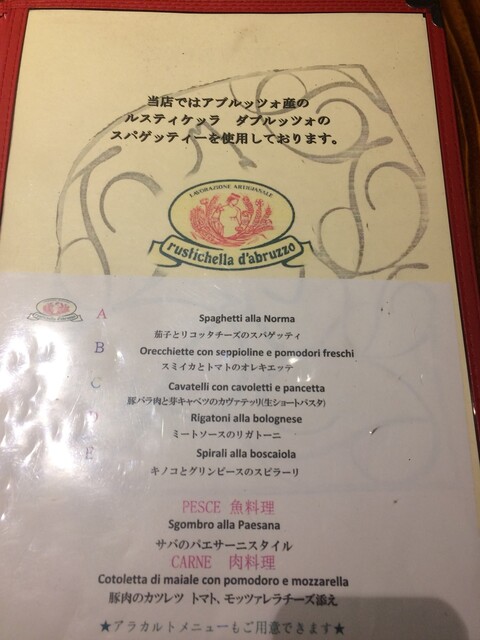 当店ではアブルッツォ産の
ルスティケッラ　ダブルッツォの
スパゲッティーを使用しております。
LAVORAZIONE ARTIGIANALE
rustichella d'abruzzo
A
Spaghetti alla Norma
茄子とリコッタチーズのスパゲッティ
B
Orecchiette con seppioline e pomodori freschi
スミイカとトマトのオレキエッテ
C
Cavatelli con cavoletti e pancetta
豚バラ肉と芽キャベツのカヴァテッリ(生ショートパスタ)
D
Rigatoni alla bolognese
ミートソースのリガトーニ
E
Spirali alla boscaiola
キノコとグリンピースのスピラーリ
PESCE 魚料理
Sgombro alla Paesana
サバのパエサーニスタイル
CARNE 肉料理
Cotoletta di maiale con pomodoro e mozzarella
豚肉のカツレツ トマト、モッツァレラチーズ添え
★アラカルトメニューもご用意できます★